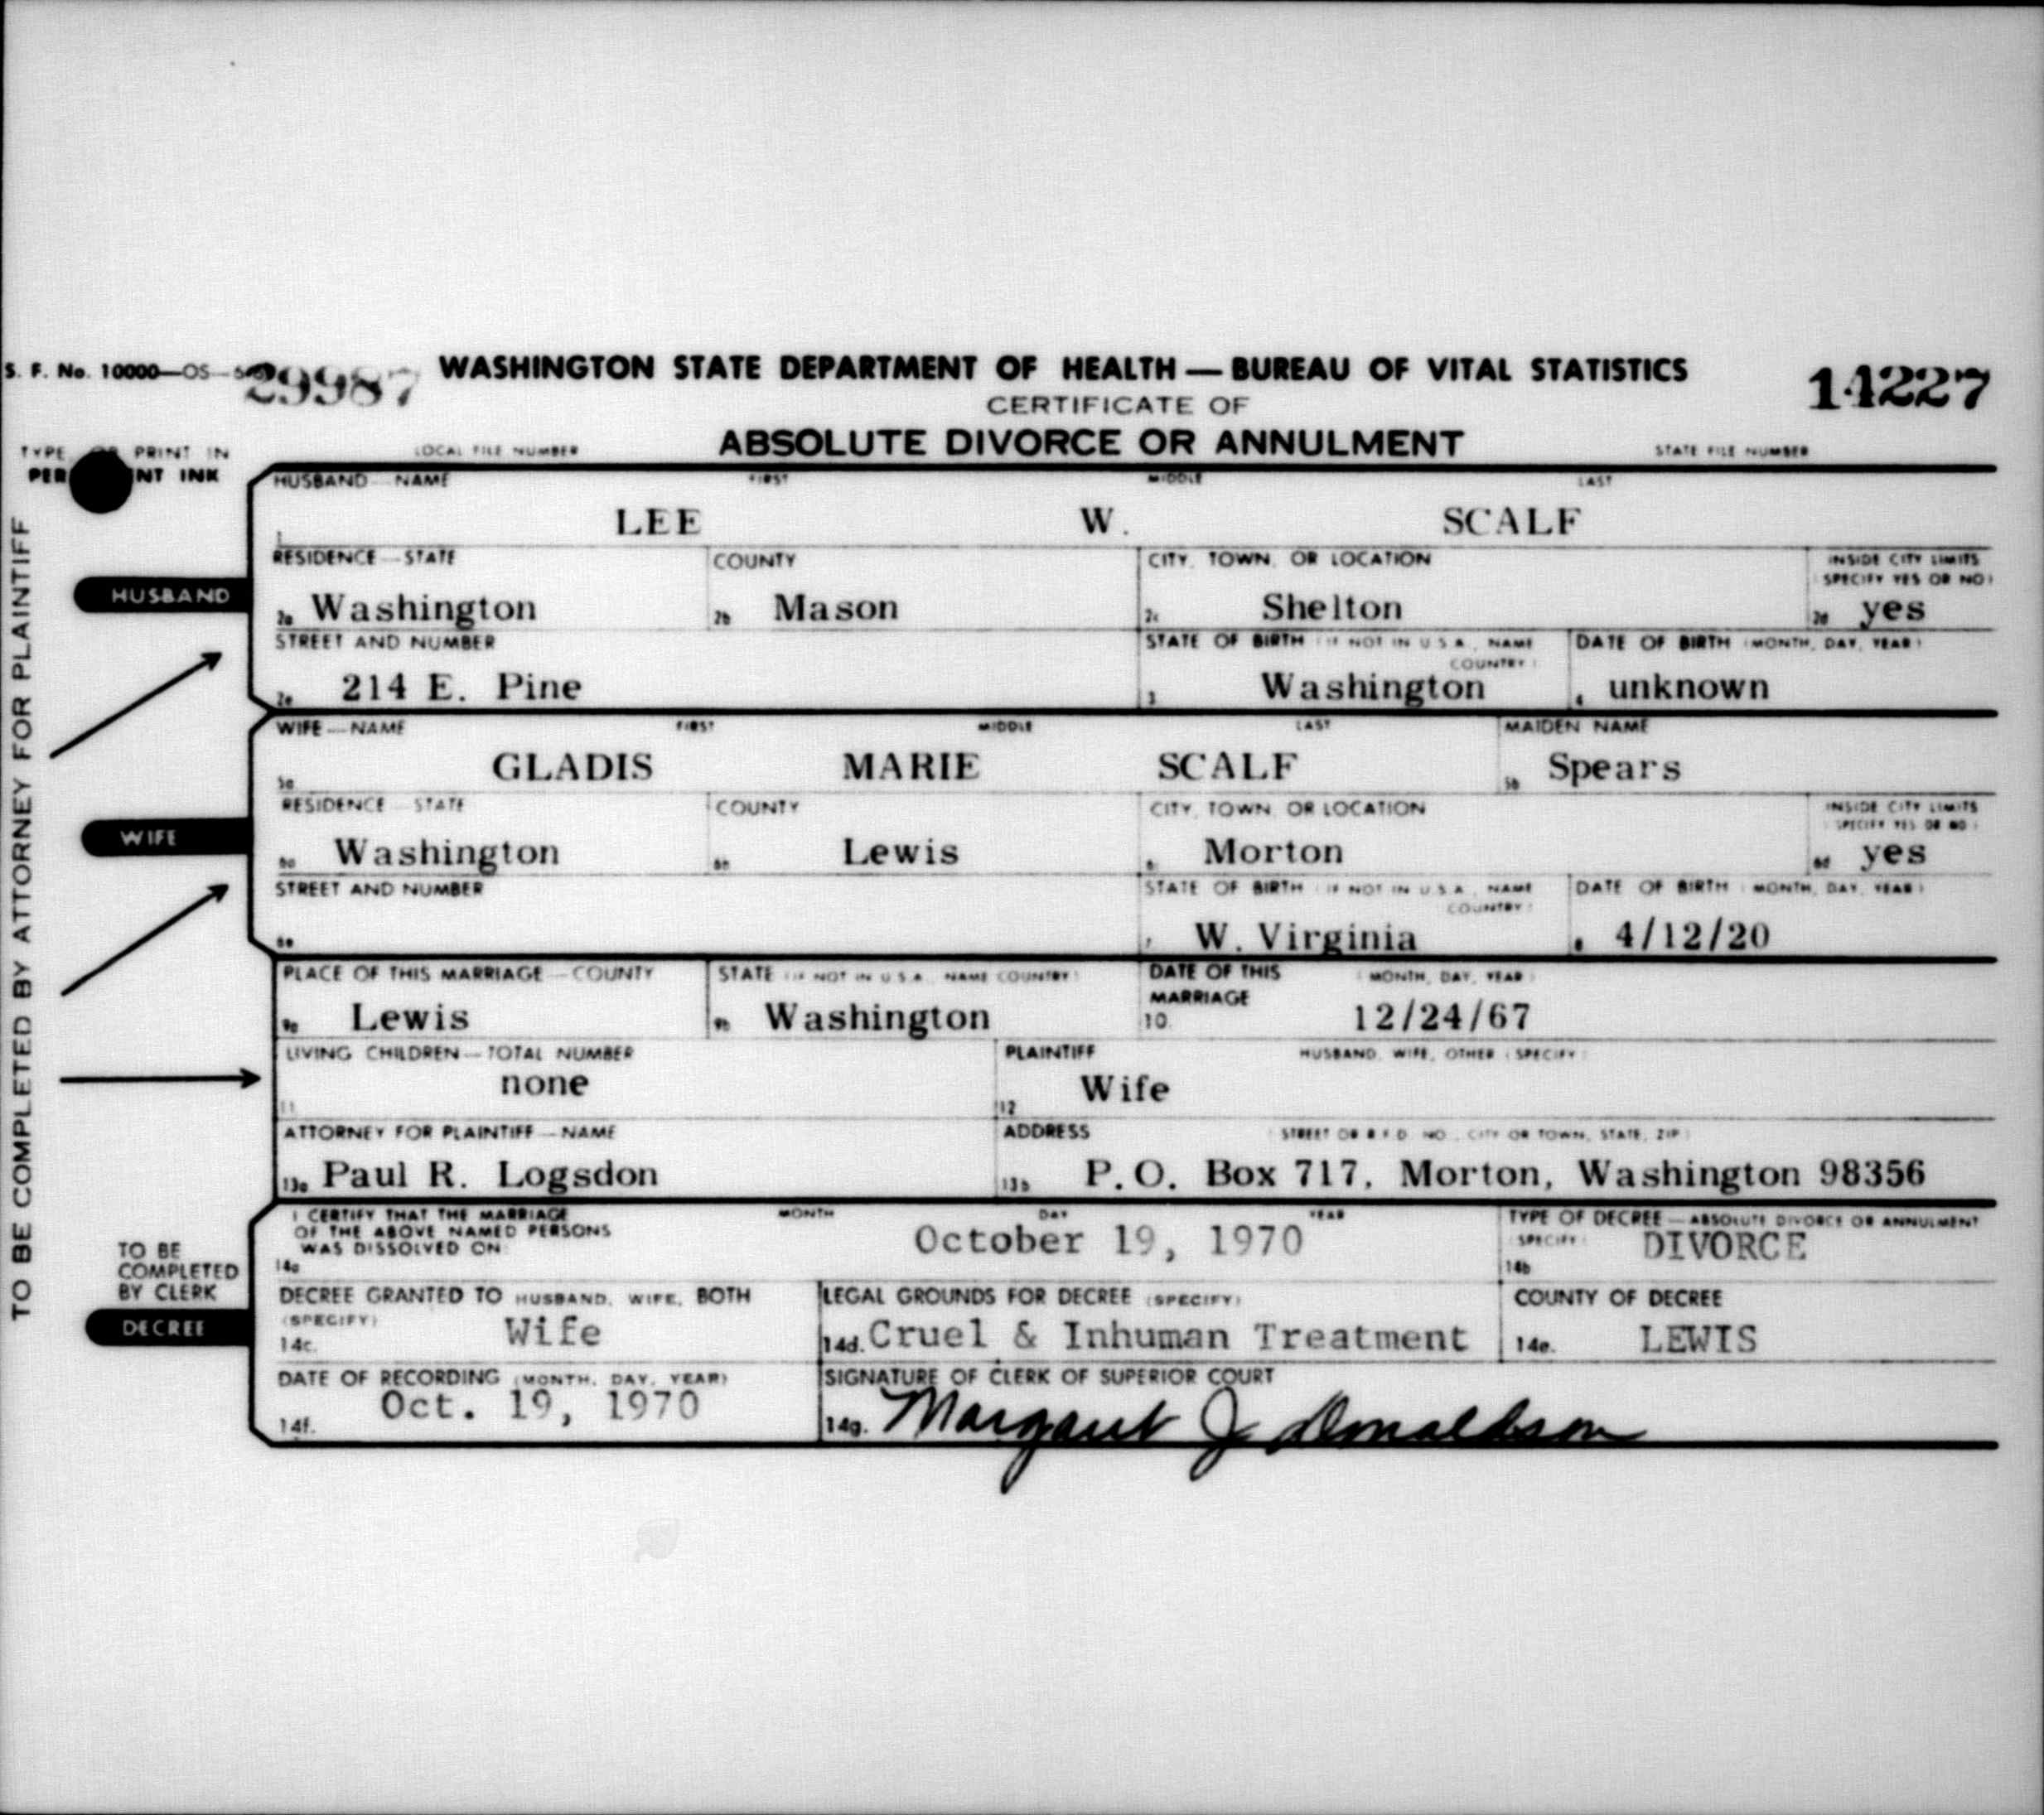 S. F. No. 10000—OS
29987
WASHINGTON STATE DEPARTMENT OF HEALTH — BUREAU OF VITAL STATISTICS
14227
CERTIFICATE OF
ABSOLUTE DIVORCE OR ANNULMENT
LOCAL FILE NUMBER
STATE FILE NUMBER
TYPE PRINT IN
PER NT INK
TO BE COMPLETED BY ATTORNEY FOR PLAINTIFF
HUSBAND—NAME FIRST MIDDLE LAST
1. LEE W. SCALF
HUSBAND
RESIDENCE—STATE COUNTY CITY, TOWN, OR LOCATION INSIDE CITY LIMITS
(SPECIFY YES OR NO)
2a Washington 2b Mason 2c Shelton 2d yes
STREET AND NUMBER STATE OF BIRTH (IF NOT IN U.S.A., NAME COUNTRY) DATE OF BIRTH (MONTH, DAY, YEAR)
2e 214 E. Pine 3 Washington 4 unknown
WIFE—NAME FIRST MIDDLE LAST MAIDEN NAME
5a GLADIS MARIE SCALF 5b Spears
WIFE
RESIDENCE—STATE COUNTY CITY, TOWN, OR LOCATION INSIDE CITY LIMITS
(SPECIFY YES OR NO)
6a Washington 6b Lewis 6c Morton 6d yes
STREET AND NUMBER STATE OF BIRTH (IF NOT IN U.S.A., NAME COUNTRY) DATE OF BIRTH (MONTH, DAY, YEAR)
6e 7 W. Virginia 8 4/12/20
PLACE OF THIS MARRIAGE—COUNTY STATE (IF NOT IN U.S.A., NAME COUNTRY) DATE OF THIS MARRIAGE (MONTH, DAY, YEAR)
9a Lewis 9b Washington 10. 12/24/67
LIVING CHILDREN—TOTAL NUMBER PLAINTIFF HUSBAND, WIFE, OTHER (SPECIFY)
11 none 12 Wife
ATTORNEY FOR PLAINTIFF—NAME ADDRESS (STREET OR R.F.D. NO., CITY OR TOWN, STATE, ZIP)
13a Paul R. Logsdon 13b P.O. Box 717, Morton, Washington 98356
TO BE
COMPLETED
BY CLERK
DECREE
I CERTIFY THAT THE MARRIAGE
OF THE ABOVE NAMED PERSONS
WAS DISSOLVED ON:
MONTH DAY YEAR
14a October 19, 1970
TYPE OF DECREE—ABSOLUTE DIVORCE OR ANNULMENT
(SPECIFY)
14b DIVORCE
DECREE GRANTED TO HUSBAND, WIFE, BOTH
(SPECIFY)
14c. Wife
LEGAL GROUNDS FOR DECREE (SPECIFY)
14d. Cruel & Inhuman Treatment
COUNTY OF DECREE
14e. LEWIS
DATE OF RECORDING (MONTH, DAY, YEAR)
14f. Oct. 19, 1970
SIGNATURE OF CLERK OF SUPERIOR COURT
14g. Margaret J Donaldson